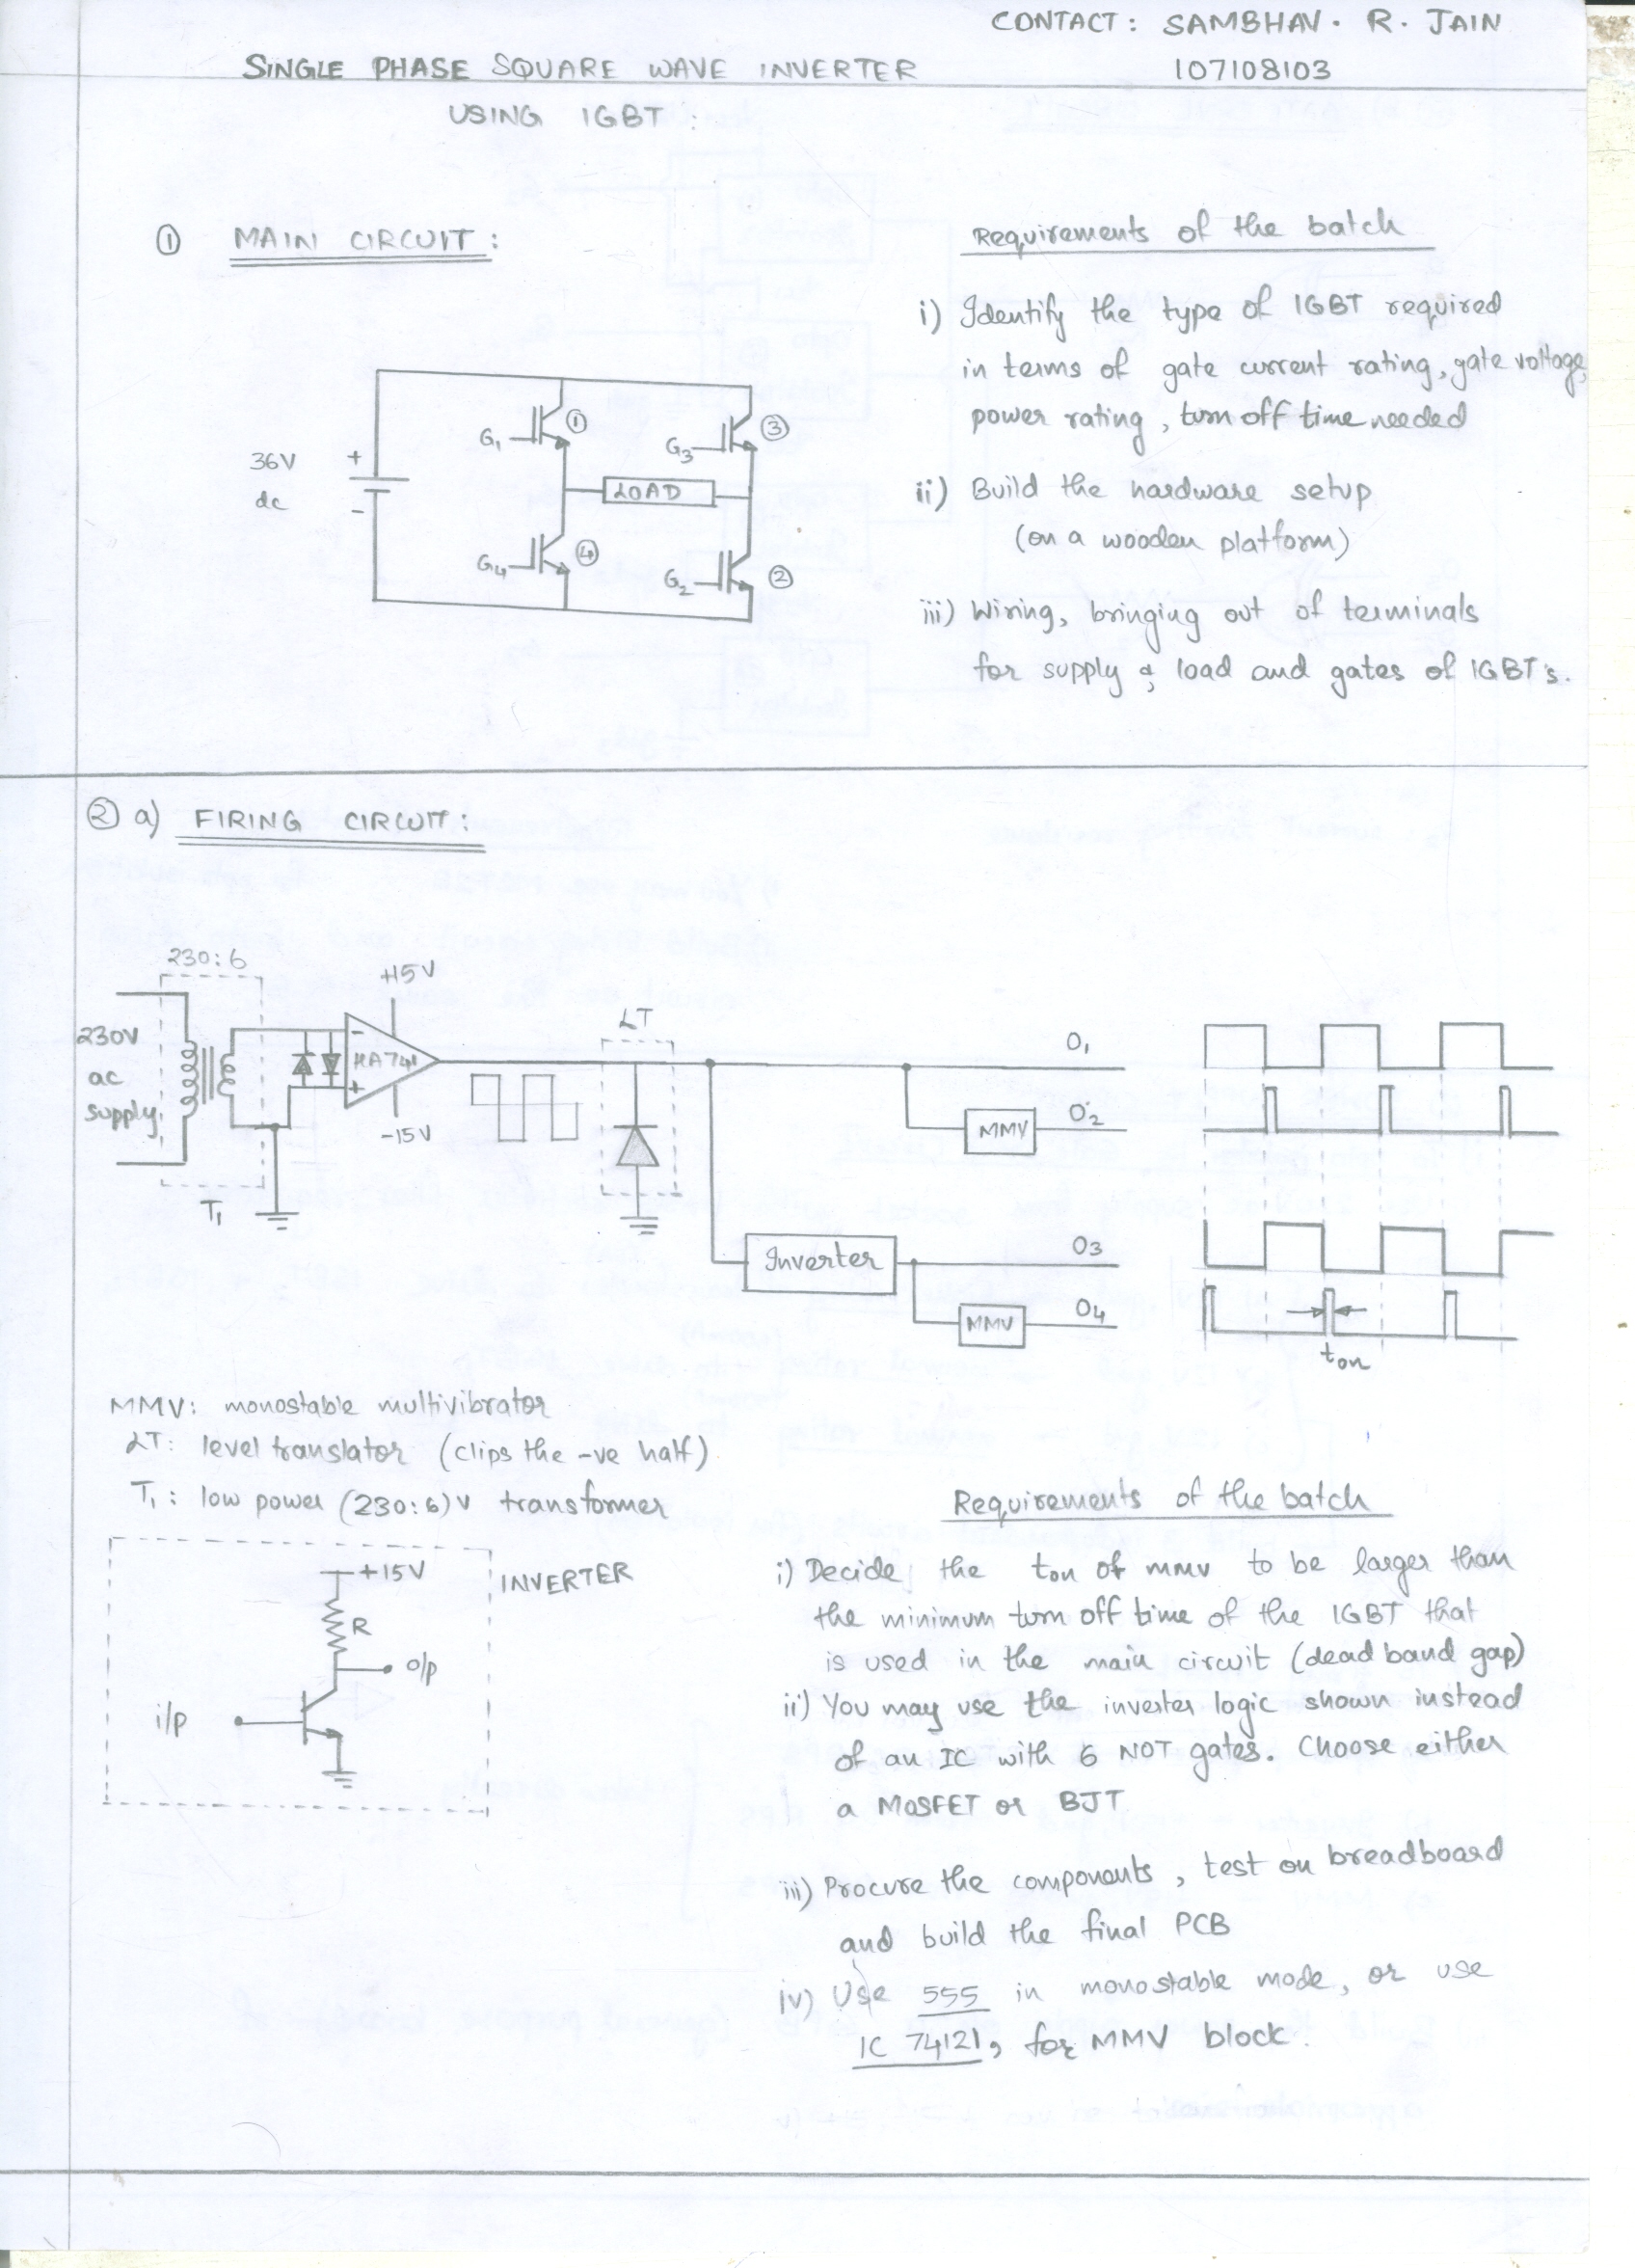 CONTACT: SAMBHAV. R. JAIN
107108103
SINGLE PHASE SQUARE WAVE INVERTER
USING IGBT:
① MAIN CIRCUIT:
36V
dc
+
-
G1
①
G3
③
LOAD
G4
④
G2
②
Requirements of the batch
i) Identify the type of IGBT required
in terms of gate current rating, gate voltage,
power rating, turn off time needed
ii) Build the hardware setup
(on a wooden platform)
iii) Wiring, bringing out of terminals
for supply & load and gates of IGBT's.
② a) FIRING CIRCUIT:
230:6
230V
ac
supply
T1
+15V
-
μA741
+
-15V
LT
O1
MMV
O2
Inverter
O3
MMV
O4
ton
MMV: monostable multivibrator
LT: level translator (clips the -ve half)
T1: low power (230:6)V transformer
+15V
INVERTER
R
o/p
i/p
Requirements of the batch
i) Decide the ton of mmv to be larger than
the minimum turn off time of the IGBT that
is used in the main circuit (dead band gap)
ii) You may use the inverter logic shown instead
of an IC with 6 NOT gates. Choose either
a MOSFET or BJT
iii) Procure the components, test on breadboard
and build the final PCB
iv) Use 555 in monostable mode, or use
IC 74121, for MMV block.